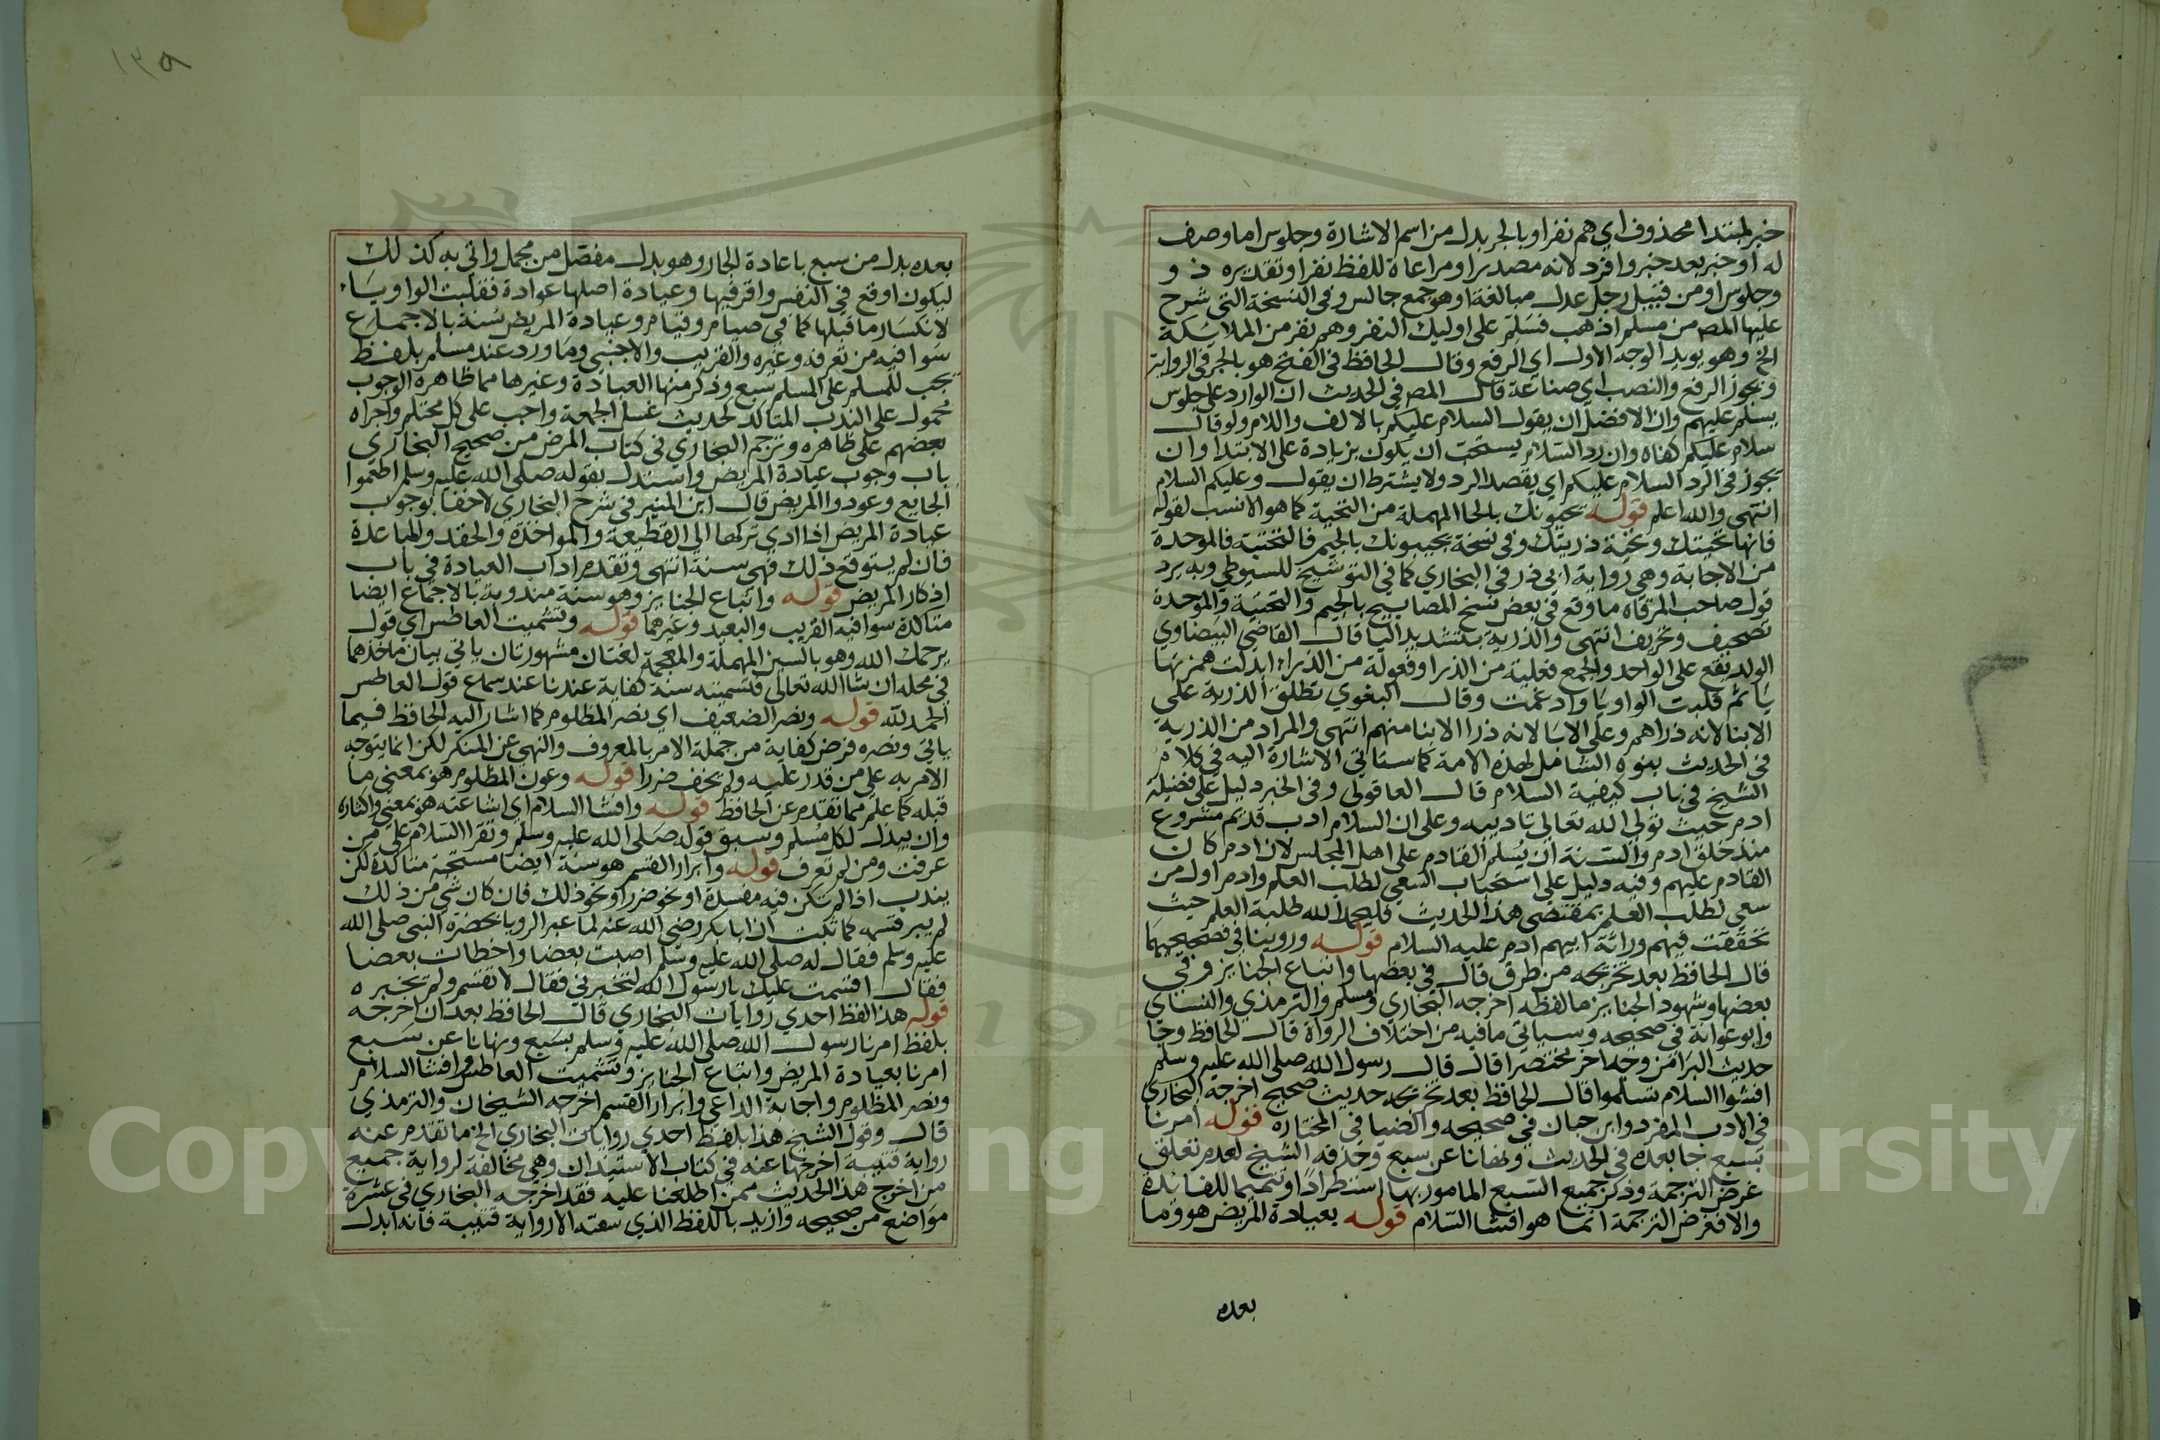 خبر لمبتدا محذوف اي هم نفر او بالجر بدل من اسم الاشارة وجلوس اما وصف
له او خبر بعد خبر وافرد لانه مصدر او مراعاة للفظ نفر او تقديره ذو
وجلوس او من قبيل رجل عدل مبالغة او هو جمع جالس وفي النسخة التي شرح
عليها المصـ من مسلم اذهب فسلم على اوليك النفر وهم نفر من الملايكة
الخ وهو يويد الوجه الاول اي الرفع وقال الحافظ في الفتح هو بالجر في الرواية
ويجوز الرفع والنصب اي صناعة قال المصـ في الحديث ان الوارد على جلوس
يسلم عليهم وان الافضل ان يقول السلام عليكم بالالف واللام ولو قال
سلام عليكم كفاه وان رد السلام يستحب ان يكون بزيادة على الابتدا وان
يجوز في الرد السلام عليكم اي بقصد الرد ولا يشترط ان يقول وعليكم السلام
انتهى والله اعلم قوله يحيونك بالحا المهملة من التحية كما هو الانسب لقوله
فانها تحيتك وتحية ذريتك وفي نسخة يجيبونك بالجيم فالتحتية فالموحدة
من الاجابة وهي رواية ابي ذر في البخاري كما في التوشيح للسيوطي وبه يرد
قول صاحب المرقاه ما وقع في بعض نسخ المصابيح بالجيم والتحتية والموحدة
تصحيف وتحريف انتهى والذرية بتشديد اليا قال القاضي البيضاوي
الولد يقع على الواحد والجمع فعلية من الذر او فعولة من الذراء ابدلت همزتها
يا ثم قلبت الواو يا وادغمت وقال البغوي تطلق الذرية على
الابنا لانه ذراهم وعلى الابا لانه ذرا الابنا منهم انتهى والمراد من الذرية
في الحديث بنوه الشامل لهذه الامة كما ستاتي الاشارة اليه في كلام
الشيخ في باب كيفية السلام قال العاقولي وفي الخبر دليل على فضيلة
ادم حيث تولى الله تعالى تاديبه وعلى ان السلام ادب قديم مشروع
منذ خلق ادم والسنة ان يسلم القادم على اهل المجلس لان ادم كان
القادم عليهم وفيه دليل على استحباب السعي لطلب العلم وادم اول من
سعى لطلب العلم بمقتضى هذا الحديث فليحمد الله طلبة العلم حيث
تحققت فيهم وراثة ابيهم ادم عليه السلام قوله وروينا في صحيحيهما
قال الحافظ بعد تخريجه من طرق قال في بعضها واتباع الجنايز وفي
بعضها وشهود الجنايز ما لفظه اخرجه البخاري ومسلم والترمذي والنساي
وابو عوانة في صحيحه وسياتي ما فيه من اختلاف الرواة قال الحافظ وجا
حديث البرا من وجه اخر مختصرا قال قال رسول الله صلى الله عليه وسلم
افشوا السلام تسلموا قال الحافظ بعد تخريجه حديث صحيح اخرجه البخاري
في الادب المفرد وابن حبان في صحيحه والضيا في المختارة قوله امرنا
بسبع جا بعده في الحديث ونهانا عن سبع وحذفه الشيخ لعدم تعلق
غرض الترجمة وذكر جميع السبع المامور بها استطرادا وتتميما للفائدة
والا فغرض الترجمة انما هو افشا السلام قوله بعيادة المريض هو وما
بعده
١٣٥
بعده بدل من سبع باعادة الجار وهو بدل مفصل من مجمل واتي به كذلك
ليكون اوقع في النفس واقر فيها وعيادة اصلها عوادة فقلبت الواو ياء
لانكسار ما قبلها كما في صيام وقيام وعيادة المريض سنة بالاجماع
سوا فيه من تعرفه وغيره والقريب والاجنبي وما ورد عند مسلم بلفظ
يجب للمسلم على المسلم سبع وذكر منها العيادة وغيرها مما ظاهره الوجوب
محمول على الندب المتاكد لحديث غسل الجمعة واجب على كل محتلم واجراه
بعضهم على ظاهره وترجم البخاري في كتاب المرض من صحيح البخاري
باب وجوب عيادة المريض واستدل بقوله صلى الله عليه وسلم اطعموا
الجايع وعودوا المريض قال ابن المنير في شرح البخاري لا خفا بوجوب
عيادة المريض اذا ادى تركها الى القطيعة والمواخذة والحقد والمباعدة
فان لم يتوقع ذلك فهي سنة انتهى وتقدم اداب العيادة في باب
اذكار المريض قوله واتباع الجنايز وهو سنة مندوبة بالاجماع ايضا
متاكدة سوا فيه القريب والبعيد وغيرهما قوله وتشميت العاطس اي قول
يرحمك الله وهو بالسين المهملة والمعجمة لغتان مشهورتان ياتي بيان ماخذهما
في محله ان شا الله تعالى فتشميته سنة كفاية عندنا عند سماع قول العاطس
الحمد لله قوله ونصر الضعيف اي نصر المظلوم كما اشار اليه الحافظ فيما
ياتي ونصره فرض كفاية من جملة الامر بالمعروف والنهي عن المنكر لكن انما يتوجه
الامر به على من قدر عليه ولم يخف ضررا قوله وعون المظلوم هو بمعنى ما
قبله كما علم مما تقدم عن الحافظ قوله وافشا السلام اي اشاعته هو بمعنى واكثاره
وان يبذل لكل مسلم وسبق قوله صلى الله عليه وسلم وتقرا السلام على من
عرفت ومن لم تعرف قوله وابرار القسم هو سنة ايضا مستحبة متاكدة لكن
يندب اذا لم تكن فيه مفسدة او نحو ضرر او نحو ذلك فان كان شي من ذلك
لم يبر قسمه كما ثبت ان ابا بكر رضي الله عنه لما عبر الرويا بحضرة النبي صلى الله
عليه وسلم فقال له صلى الله عليه وسلم اصبت بعضا واخطات بعضا
فقال اقسمت عليك يا رسول الله لتخبرني فقال لا تقسم ولم يخبره
قوله هذا لفظ احدي روايات البخاري قال الحافظ بعد ان اخرجه
بلفظ امرنا رسول الله صلى الله عليه وسلم بسبع ونهانا عن سبع
امرنا بعيادة المريض واتباع الجنايز وتشميت العاطس وافشا السلام
ونصر المظلوم واجابة الداعي وابرار القسم اخرجه الشيخان والترمذي
قال وقول الشيخ هذا بلفظ احدي روايات البخاري الخ ما تقدم عنه
رواية قتيبة اخرجها عنه في كتاب الاستيذان وهي مخالفة لرواية جميع
من اخرج هذا الحديث ممن اطلعنا عليه فقد اخرجه البخاري في عشرة
مواضع من صحيحه وازيد باللفظ الذي سقته الا رواية قتيبة فانه ابدل